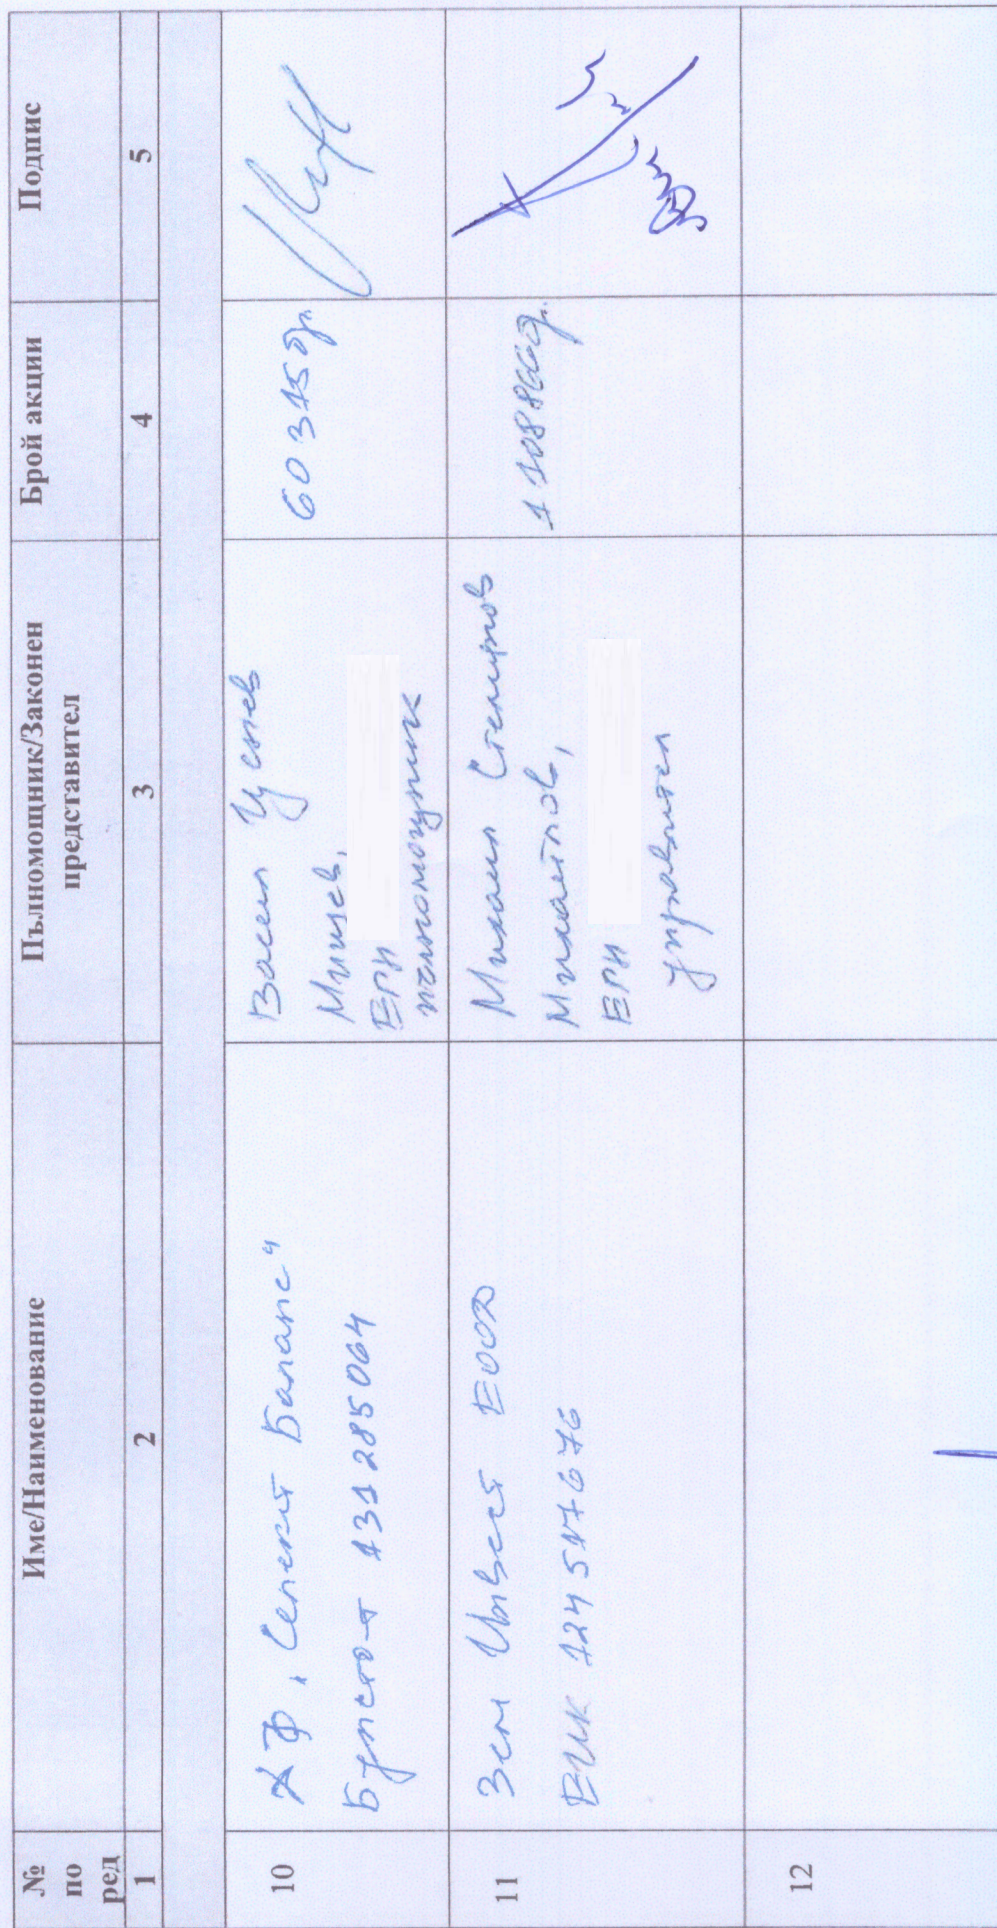 № по ред
Име/Наименование
Пълномощник/Законен представител
Брой акции
Подпис
1
2
3
4
5
10
Селект Баланс"
Булстат 131285064
Васил
ЕГН
пълномощник
60 315 бр.
11
Зем Инвест ЕООД
ЕИК 124517676
Михаил
ЕГН
управител
12